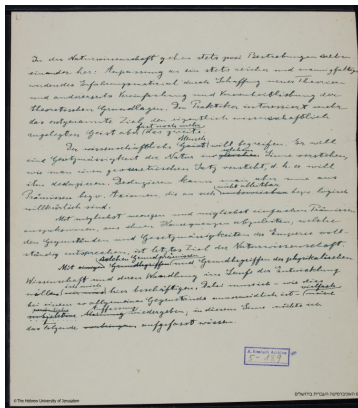 In der Naturwissenschaft gehen stets zwei Bestrebungen neben
einander her: Anpassung an ein stets reicher und mannigfaltiger
werdendes Erfahrungsmaterial durch Schaffung neuer Theorien
und andererseits Vereinfachung und Vereinheitlichung der
theoretischen Grundlagen. Den Praktiker interessiert mehr
das erstgenannte Ziel, den eigentlich wissenschaftlich
fast noch mehr
eingestellten Geist aber das zweite.
Mensch
Der wissenschaftliche will begreifen. Er will
eine Gesetzmässigkeit der Natur in Sinne verstehen,
wie man einen geometrischen Satz versteht, d. h. er will
ihn deduzieren. Deduzieren kann man aber nur aus
nicht ableitbar
Prämissen bezw. Axiomen, die an sich bezw. logisch
willkürlich sind.
Mit möglichst wenigen und möglichst einfachen Prämissen
auszukommen, aus ihnen Folgerungen abzuleiten, welche
den Gegenständen und Gesetzmässigkeiten der Empirie voll-
ständig entsprechen, ist letztes Ziel der Naturwissenschaft.
Mit Grundbegriffen der physikalischen
Wissenschaft und deren Wandlung im Laufe der Entwicklung
hier beschäftigen. Dabei muss ich - wie dies
bei einem so allgemeinen Gegenstande unvermeidlich ist - meine
Auffassung
wiedergeben, in diesem Sinne möchte ich
das folgende aufgefasst wissen.
A. Einstein Archive
5-189
© The Hebrew University of Jerusalem
האוניברסיטה העברית בירושלים